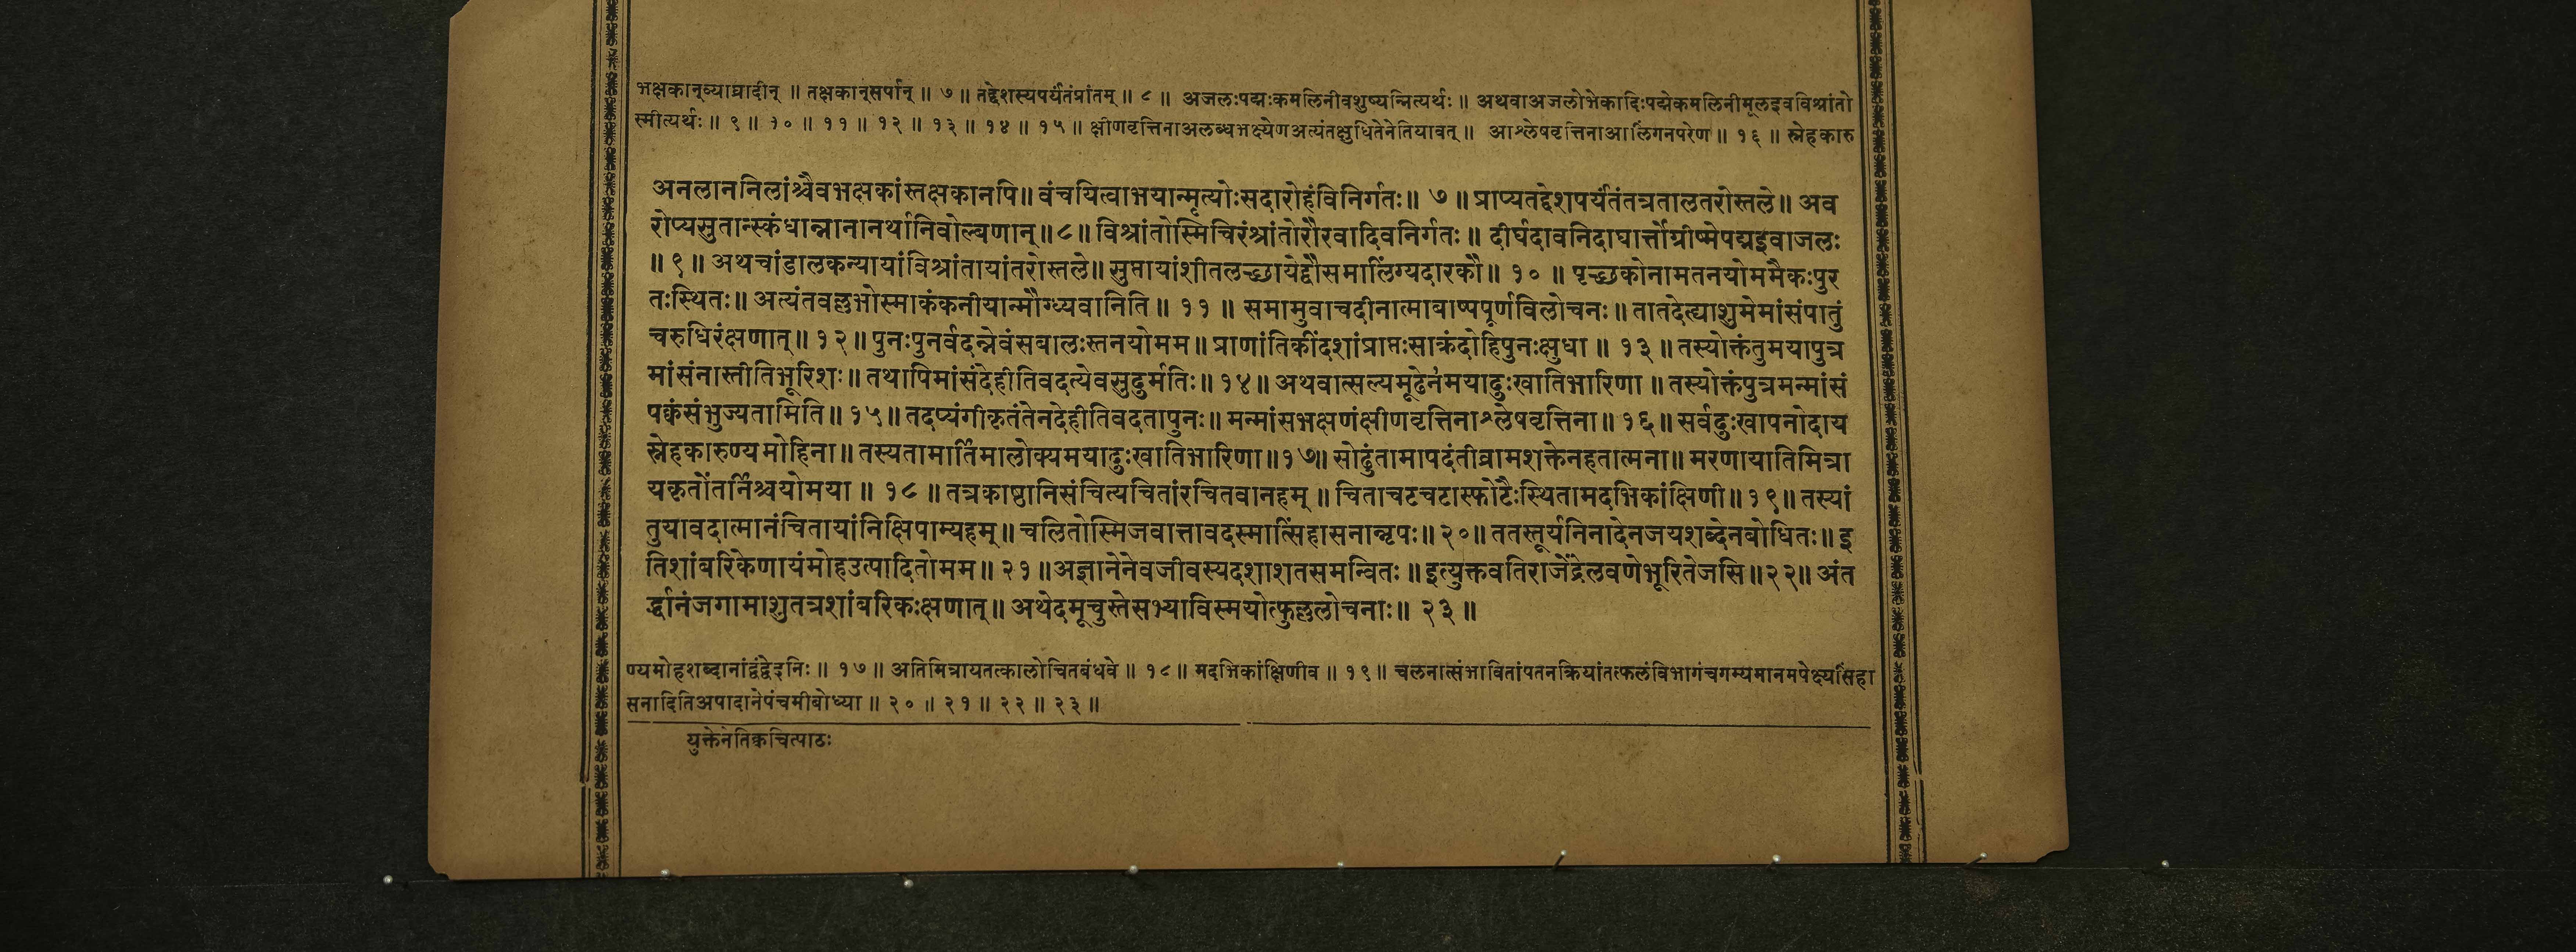 भक्षकान्व्याघ्रादीन् ॥ तक्षकान्सर्पान् ॥ ७ ॥ तद्देशस्यपर्यंतंप्रांतम् ॥ ८ ॥ अजलःपद्मःकमलिनीवशुष्यन्नित्यर्थः ॥ अथवाअजलोभेकादिःपद्मेकमलिनीमूलइवविश्रांतो
स्मीत्यर्थः ॥ ९ ॥ १० ॥ ११ ॥ १२ ॥ १३ ॥ १४ ॥ १५ ॥ क्षीणवृत्तिनाअलब्धभक्ष्येणअत्यंतक्षुधितेनेतियावत् ॥ आश्लेषवृत्तिनाआलिंगनपरेण ॥ १६ ॥ स्नेहकारु
अनलाननिलांश्चैवभक्षकांस्तक्षकानपि॥ वंचयित्वाभयान्मृत्योःसदारोहंविनिर्गतः॥ ७ ॥ प्राप्यतद्देशपर्यंतंतत्रतालतरोस्तले॥ अव
रोप्यसुतान्स्कंधान्नानानर्थानिवोल्बणान्॥८॥ विश्रांतोस्मिचिरंश्रांतोरौरवादिवनिर्गतः॥ दीर्घदावनिदाघार्त्तोग्रीष्मेपद्मइवाजलः
॥ ९॥ अथचांडालकन्यायांविश्रांतायांतरोस्तले॥ सुप्तायांशीतलच्छायेद्वौसमालिंग्यदारकौ॥ १० ॥ पृच्छकोनामतनयोममैकःपुर
तःस्थितः॥ अत्यंतवल्लभोस्माकंकनीयान्मौग्ध्यवानिति॥ ११ ॥ समामुवाचदीनात्माबाष्पपूर्णविलोचनः॥ तातदेह्याशुमेमांसंपातुं
चरुधिरंक्षणात्॥ १२॥ पुनःपुनर्वदन्नेवंसबालःस्तनयोमम॥ प्राणांतिकींदशांप्राप्तःसाक्रंदोहिपुनःक्षुधा॥ १३॥ तस्योक्तंतुमयापुत्र
मांसंनास्तीतिभूरिशः॥ तथापिमांसंदेहीतिवदत्येवसुदुर्मतिः॥ १४॥ अथवात्सल्यमूढेन॑मयादुःखातिभारिणा॥ तस्योक्तंपुत्रमन्मांसं
पक्वंसंभुज्यतामिति॥ १५॥ तदप्यंगीकृतंतेनदेहीतिवदतापुनः॥ मन्मांसभक्षणंक्षीणवृत्तिनाश्लेषवृत्तिना॥ १६॥ सर्वदुःखापनोदाय
स्नेहकारुण्यमोहिना॥ तस्यतामार्तिमालोक्यमयादुःखातिभारिणा॥१७॥ सोढुंतामापदंतीव्रामशक्तेनहतात्मना॥ मरणायातिमित्रा
यकृतोंतर्निश्चयोमया॥ १८॥ तत्रकाष्ठानिसंचित्यचितांरचितवानहम्॥ चिताचटचटास्फोटैःस्थितामदभिकांक्षिणी॥१९॥ तस्यां
तुयावदात्मानंचितायांनिक्षिपाम्यहम्॥ चलितोस्मिजवात्तावदस्मात्सिंहासनान्नृपः॥२०॥ ततस्तूर्यनिनादेनजयशब्देनबोधितः॥ इ
तिशांबरिकेणायंमोहउत्पादितोमम॥ २१॥अज्ञानेनेवजीवस्यदशाशतसमन्वितः॥इत्युक्तवतिराजेंद्रेलवणेभूरितेजसि॥२२॥ अंत
र्द्धानंजगामाशुतत्रशांबरिकःक्षणात्॥ अथेदमूचुस्तेसभ्याविस्मयोत्फुल्ललोचनाः॥ २३॥
ण्यमोहशब्दानांद्वंद्वेइनिः ॥ १७ ॥ अतिमित्रायतत्कालोचितबंधवे ॥ १८ ॥ मदभिकांक्षिणीव ॥ १९ ॥ चलनात्संभावितांपतनक्रियांतत्फलंविभागंचगम्यमानमपेक्ष्यसिंहा
सनादितिअपादानेपंचमीबोध्या ॥ २० ॥ २१ ॥ २२ ॥ २३ ॥
युक्तेनेतिक्वचित्पाठः